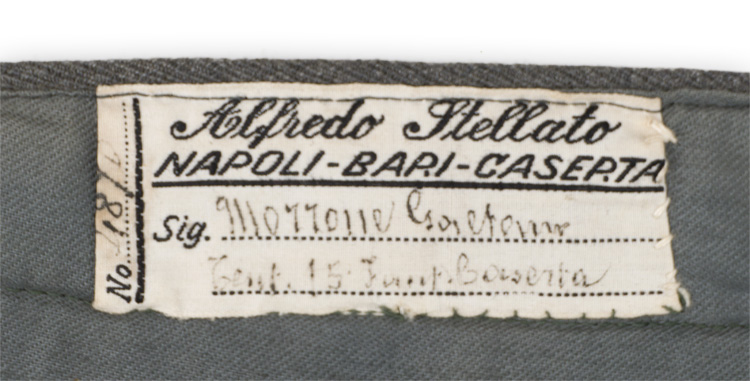 Alfredo Stellato
NAPOLI-BARI-CASERTA
Sig. Morrone Gaetano
Tent. 15 Fant. Caserta
No.